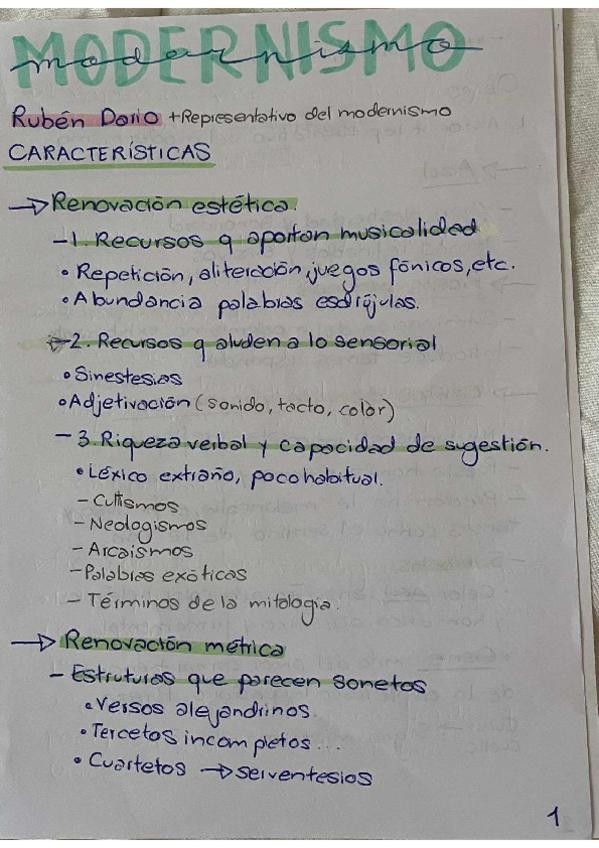 MODERNISMO
modernismo
Rubén Dario +Representativo del modernismo
CARACTERÍSTICAS
→ Renovación estética.
- 1. Recursos q aportan musicalidad
• Repetición, aliteración, juegos fónicos, etc.
• Abundancia palabras esdrújulas.
- 2. Recursos q aluden a lo sensorial
• Sinestesias
• Adjetivación (sonido, tacto, color)
- 3. Riqueza verbal y capacidad de sugestión.
• Léxico extraño, poco habitual.
- Cultismos
- Neologismos
- Arcaismos
- Palabras exóticas
- Términos de la mitología.
→ Renovación métrica
- Estruturas que parecen sonetos
• Versos alejandrinos.
• Tercetos incompletos...
• Cuartetos → serventesios
1